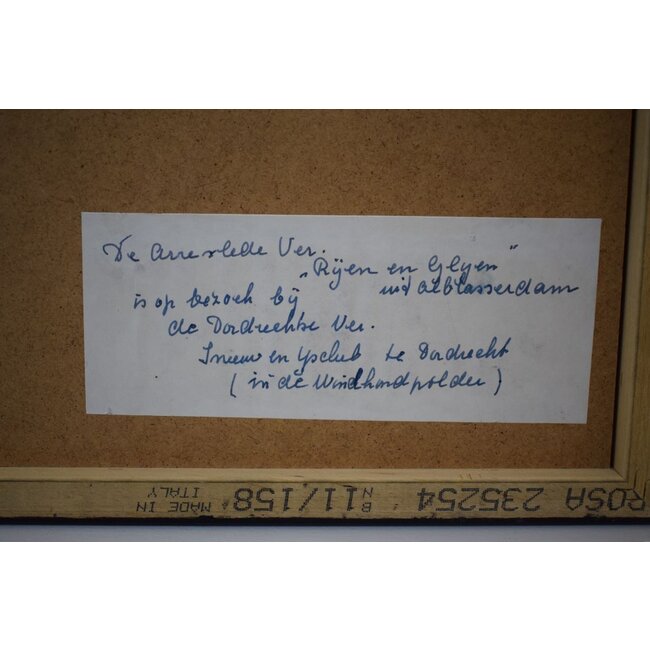 De Arreslede Ver.
„Rijen en Glyen"
is op bezoek bij uit Alblasserdam
de Dordrechtse Ver.
Sneeuw en Ysclub te Dordrecht
(in de Windhondpolder)
ROSA 235254 B N 11/158 MADE IN ITALY